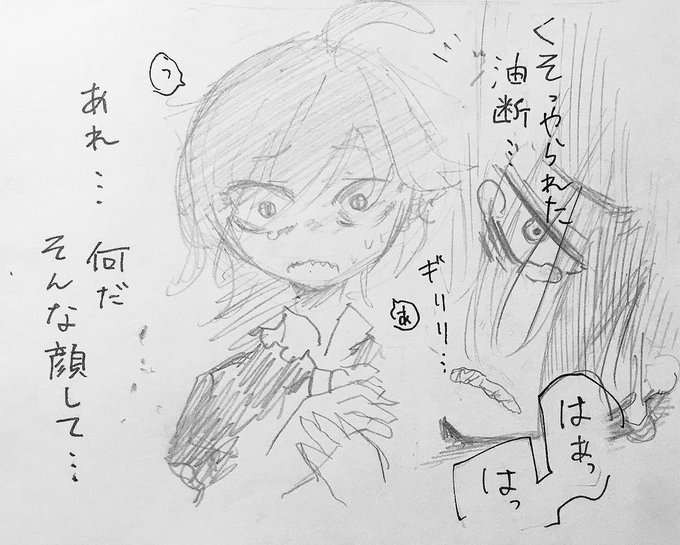 くそっやられた
油断…
ギリリ…
はあっ
はっ
っ
あれ… 何だ
そんな顔して…